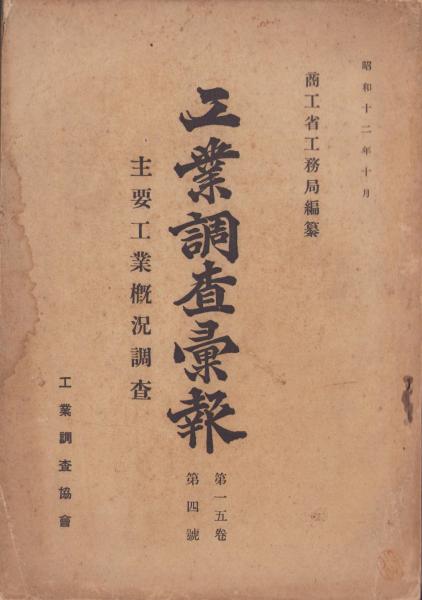 昭和十二年十月
商工省工務局編纂
工業調査彙報
第一五卷
第四號
主要工業概況調査
工業調査協會